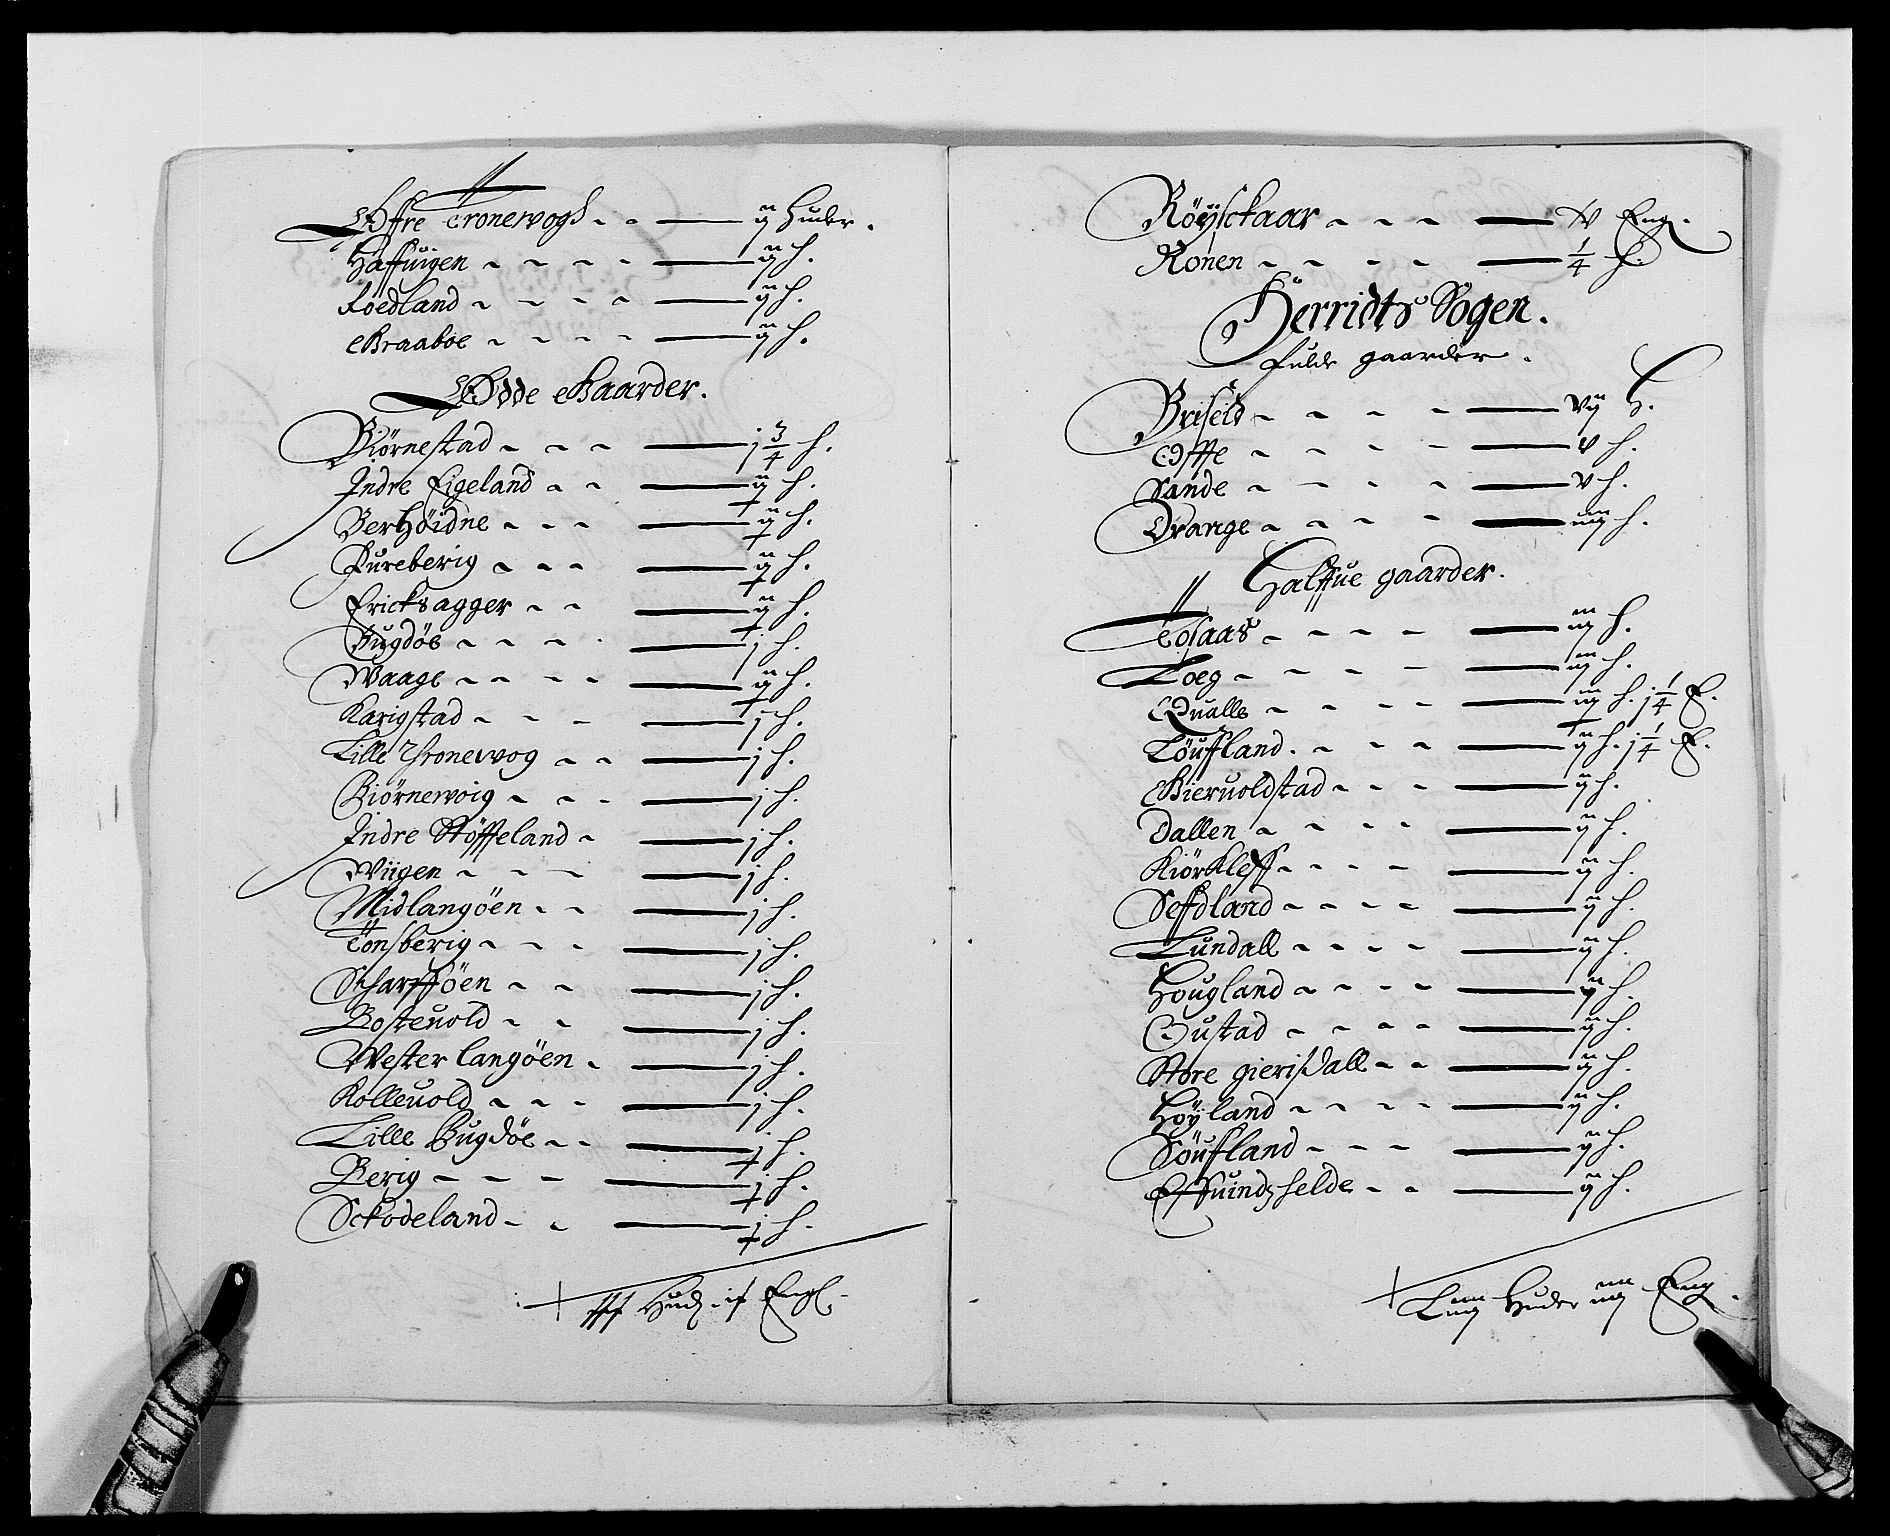 Øffre Tronewogd - - — ij Huder.
Haffuigen - - - - — ij h.
Roedland - - - - — ij h.
Braaboe - - - - — ij h.
Ødde Gaarder.
Biørnestad - - - — j 3/4 h.
Indre Eigeland - - — ij h.
Berhöidne - - - — ij h.
Fureberig - - - — ij h.
Ericksagger - - — ij h.
Bugdöe - - - - — j h.
Waage - - - - — ij h.
Karigstad - - - — j h.
Lille Tronewog - - — j h.
Biörnewoig - - - — j h.
Indre Stöffeland - — j h.
Wiigen - - - — j h.
Midlangöen - - — j h.
Tönsberig - - - — j h.
Scharfföen - - — j h.
Bosteuold - - — j h.
Wester langöen - — j h.
Kolleuold - - - — j h.
Lille Bugdöe - - — j h.
Berig - - - — j h.
Sckodeland - - — j h.
Hud Engl.
Röysckaar - - - — Eng.
Rönen - - - - — 1/4 h.
Herridts Sogen.
fulde gaarder.
Briseid - - - - — vij h.
Osffe - - - - — v h.
Sande - - - - — v h.
Orange - - - - — iiij h.
Halffue gaarder.
Tosaas - - - - — iij h.
Loeg - - - - — iij h.
Qualle - - - - — iij h. j 1/4 E.
Löuffland. - - - — ij h. j 1/4 E.
Gieruoldstad - - - — ij h.
Dallen - - - - — ij h.
Kiörkleff - - - - — ij h.
Seffdland - - - - — ij h.
Lundall - - - - — ij h.
Hougland - - - - — ij h.
Gustad - - - - — ij h.
Store gierisdall - - — ij h.
Höyland - - - - — ij h.
Söuffland - - - — ij h.
Effuindshelde - - — ij h.
Liiij Huder iiij Eng.